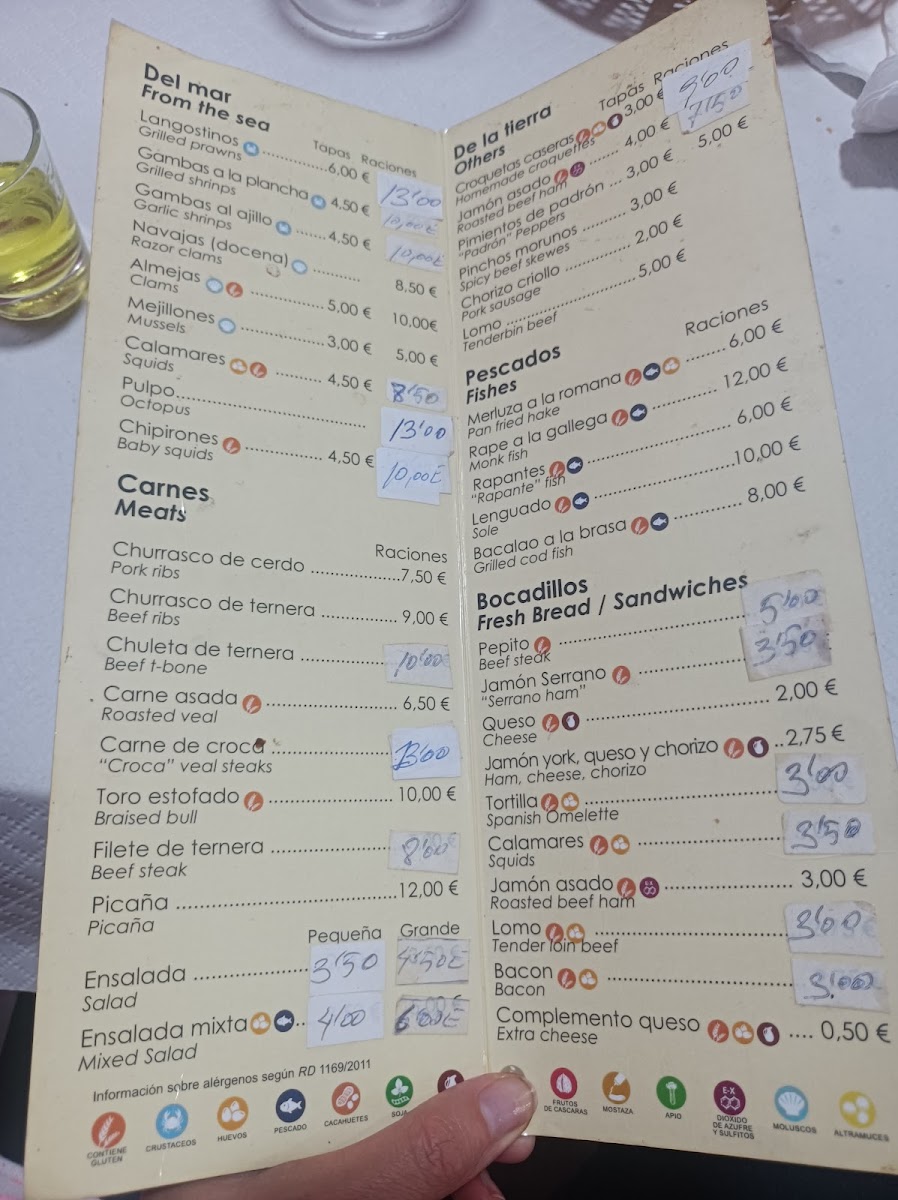 Del mar
From the sea
Tapas Raciones
Langostinos ..............6,00 € 13'00
Grilled prawns
Gambas a la plancha 4,50 € 10,00€
Grilled shrinps
Gambas al ajillo ....... 4,50 € 10,00€
Garlic shrinps
Navajas (docena) ........... 8,50 €
Razor clams
Almejas .............. 5,00 € 10,00€
Clams
Mejillones .............. 3,00 € 5,00 €
Mussels
Calamares .......... 4,50 € 8'50
Squids
Pulpo............................... 13'00
Octopus
Chipirones ............... 4,50 € 10,00€
Baby squids
Carnes
Meats
Raciones
Churrasco de cerdo ..................7,50 €
Pork ribs
Churrasco de ternera ................ 9,00 €
Beef ribs
Chuleta de ternera .................. 10'00
Beef t-bone
Carne asada .......................... 6,50 €
Roasted veal
Carne de croca ..................... 13'00
"Croca" veal steaks
Toro estofado ........................ 10,00 €
Braised bull
Filete de ternera ...................... 8'00
Beef steak
Picaña ......................................12,00 €
Picaña
Pequeña Grande
Ensalada ..................... 3'50 4'50€
Salad
Ensalada mixta .. 4'00 6'00€
Mixed Salad
Información sobre alérgenos según RD 1169/2011
CONTIENE GLUTEN
CRUSTACEOS
HUEVOS
PESCADO
CACAHUETES
SOJA
De la tierra
Others
Tapas Raciones
Croquetas caseras 3,00 €
Homemade croquettes
Jamón asado ....... 4,00 € 7'50
Roasted beef ham
Pimientos de padrón ... 3,00 € 5,00 €
"Padrón" Peppers
Pinchos morunos ......... 3,00 €
Spicy beef skewes
Chorizo criollo .............. 2,00 €
Pork sausage
Lomo ........................... 5,00 €
Tenderbin beef
Pescados
Fishes
Raciones
Merluza a la romana ........6,00 €
Pan fried hake
Rape a la gallega ................ 12,00 €
Monk fish
Rapantes ......................... 6,00 €
"Rapante" fish
Lenguado .........................10,00 €
Sole
Bacalao a la brasa ............ 8,00 €
Grilled cod fish
Bocadillos
Fresh Bread / Sandwiches
Pepito ............................... 5'00
Beef steak
Jamón Serrano .................. 3'50
"Serrano ham"
Queso ................................ 2,00 €
Cheese
Jamón york, queso y chorizo ..2,75 €
Ham, cheese, chorizo
Tortilla ............................... 3'00
Spanish Omelette
Calamares ........................ 3'50
Squids
Jamón asado ...................... 3,00 €
Roasted beef ham
Lomo ................................. 3'00
Tender loin beef
Bacon ................................ 3,00
Bacon
Complemento queso .... 0,50 €
Extra cheese
FRUTOS DE CASCARAS
MOSTAZA
APIO
E-X
DIOXIDO DE AZUFRE Y SULFITOS
MOLUSCOS
ALTRAMUCES